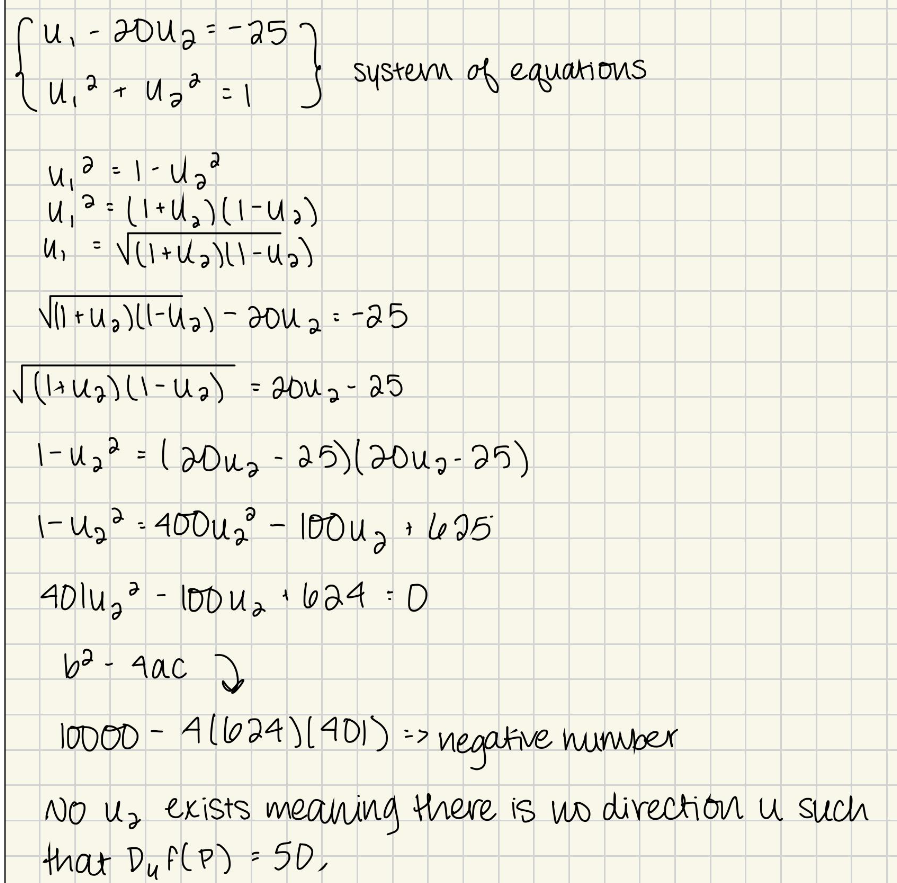 u₁ - 20u₂ = -25
u₁² + u₂² = 1
system of equations
u₁² = 1 - u₂²
u₁² = (1+u₂)(1-u₂)
u₁ = √(1+u₂)(1-u₂)
√(1+u₂)(1-u₂) - 20u₂ = -25
√(1+u₂)(1-u₂) = 20u₂ - 25
1-u₂² = (20u₂ - 25)(20u₂ - 25)
1-u₂² = 400u₂² - 100u₂ + 625
401u₂² - 100u₂ + 624 = 0
b² - 4ac
10000 - 4(624)(401) => negative number
No u₂ exists meaning there is no direction u such
that Dᵤf(P) = 50,